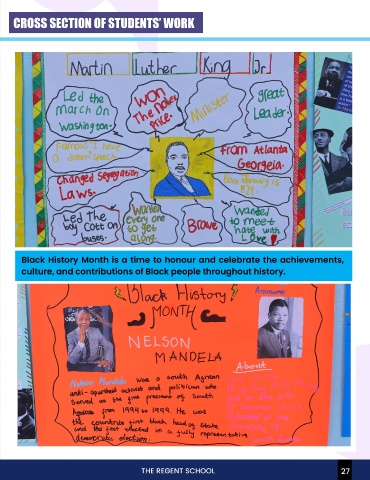 CROSS SECTION OF STUDENTS' WORK
Martin Luther King Jr
Led the
march on
Washington.
Won
The nobel
price.
Minister
great
Leader.
Famous I have
a dream speech
From Atlanta
Georgeia.
Changed Segregation
Laws.
Born January 15
1929
Led the
boy cott on
buses.
Wanted
every one
to get
along.
Brave
Wanted
to meet
hate with
Love!
Black History Month is a time to honour and celebrate the achievements,
culture, and contributions of Black people throughout history.
Black History
MONTH
NELSON
MANDELA
About
Nelson Mandela was a south African
anti-apartheid activist and politician who
Served as the first president of South
from 1994 to 1999. He was
the countries first black head of State
and the first elected in a fully representative
democratic election.
THE REGENT SCHOOL
27